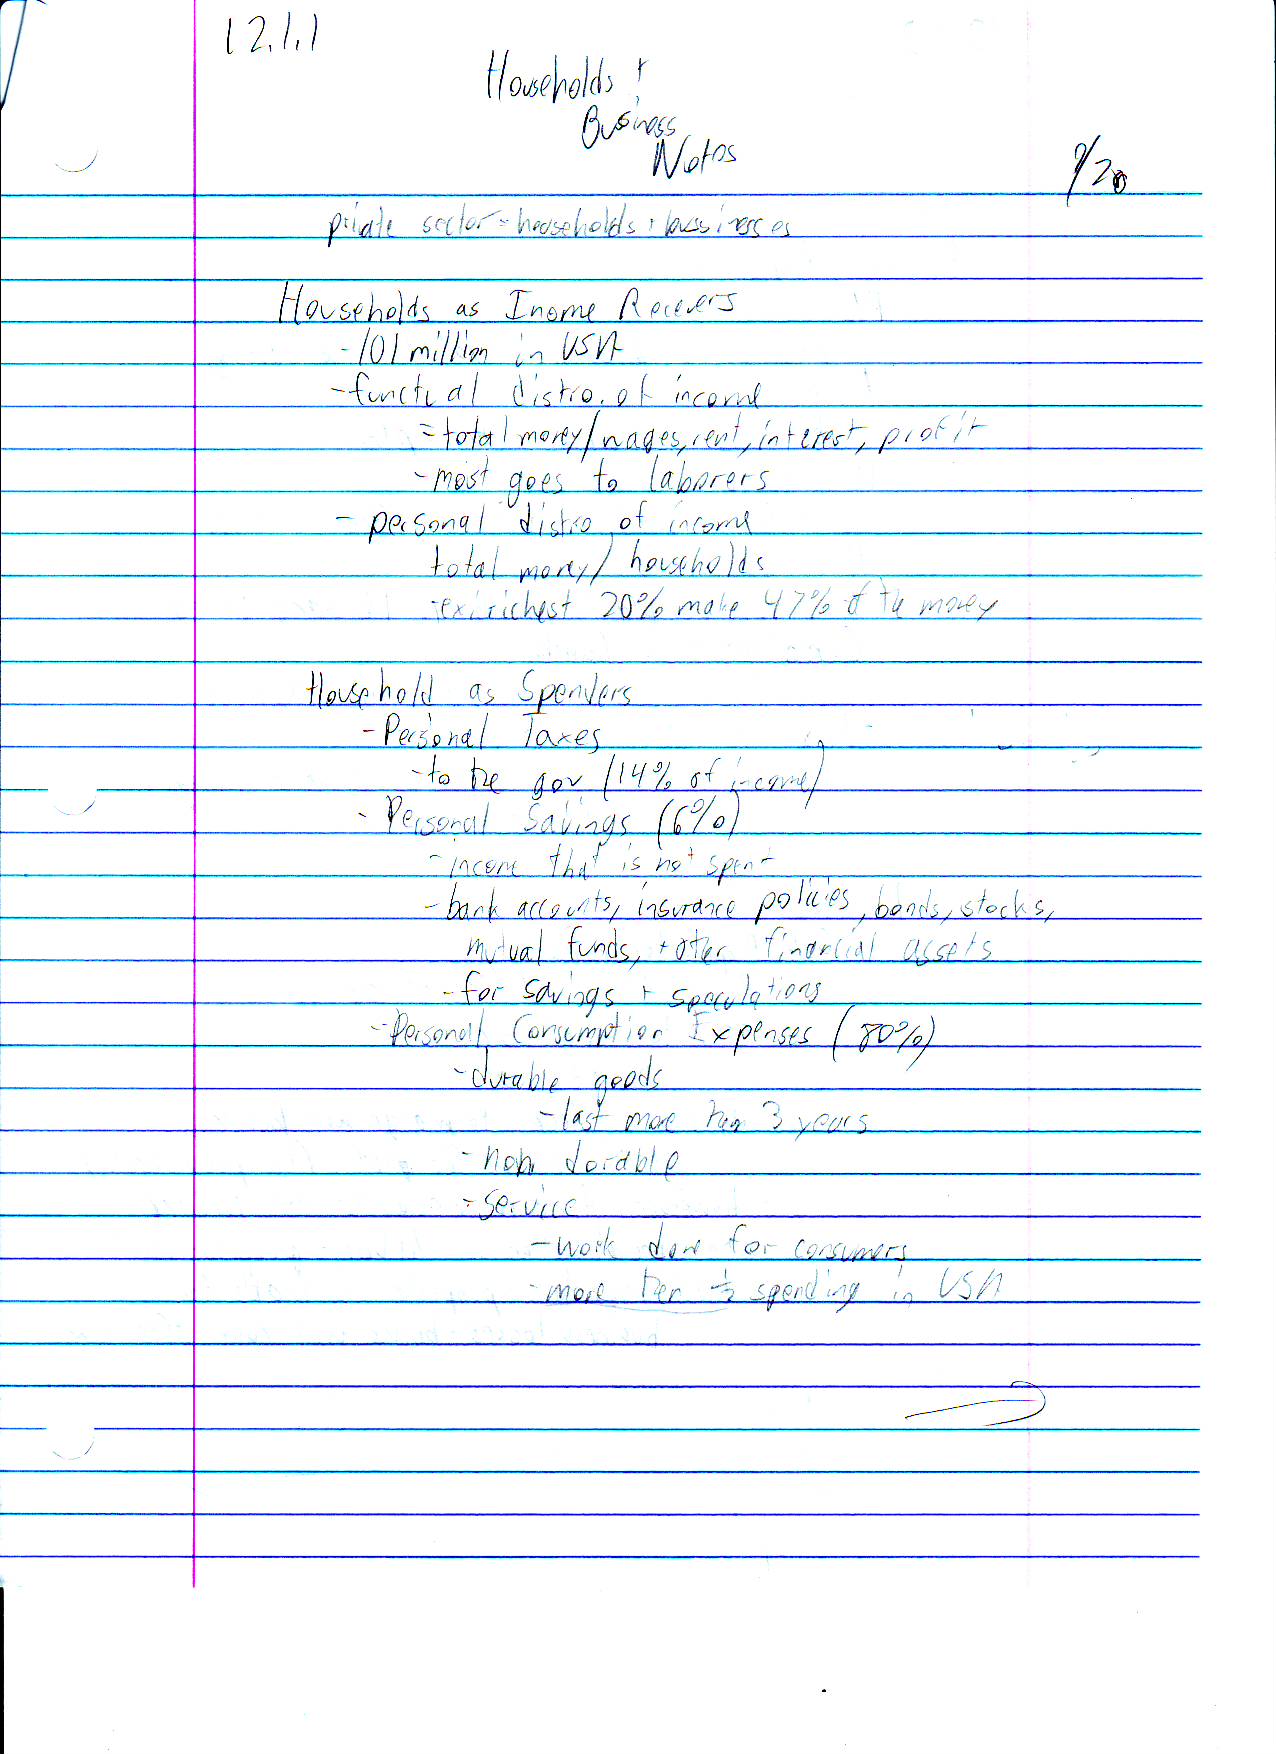 12.1.1
Households +
Business
Notes
9/20
private sector = households + businesses
Households as Inome Recievers
- 101 million in USA
- functual distro. of income
= total money/wages, rent, interest, profit
- most goes to laborers
- personal distro of income
total money/ households
-ex: richest 20% make 47% of the money
Household as Spenders
- Personal Taxes
- to the gov (14% of income)
- Personal Savings (6%)
- income that is not spent
- bank accounts, insurance policies, bonds, stocks,
mutual funds, + other financial assets
- for savings + speculations
- Personal Consumption Expenses (80%)
- durable goods
- last more then 3 years
- non dorable
- service
- work done for consumers
- more then ½ spending in USA